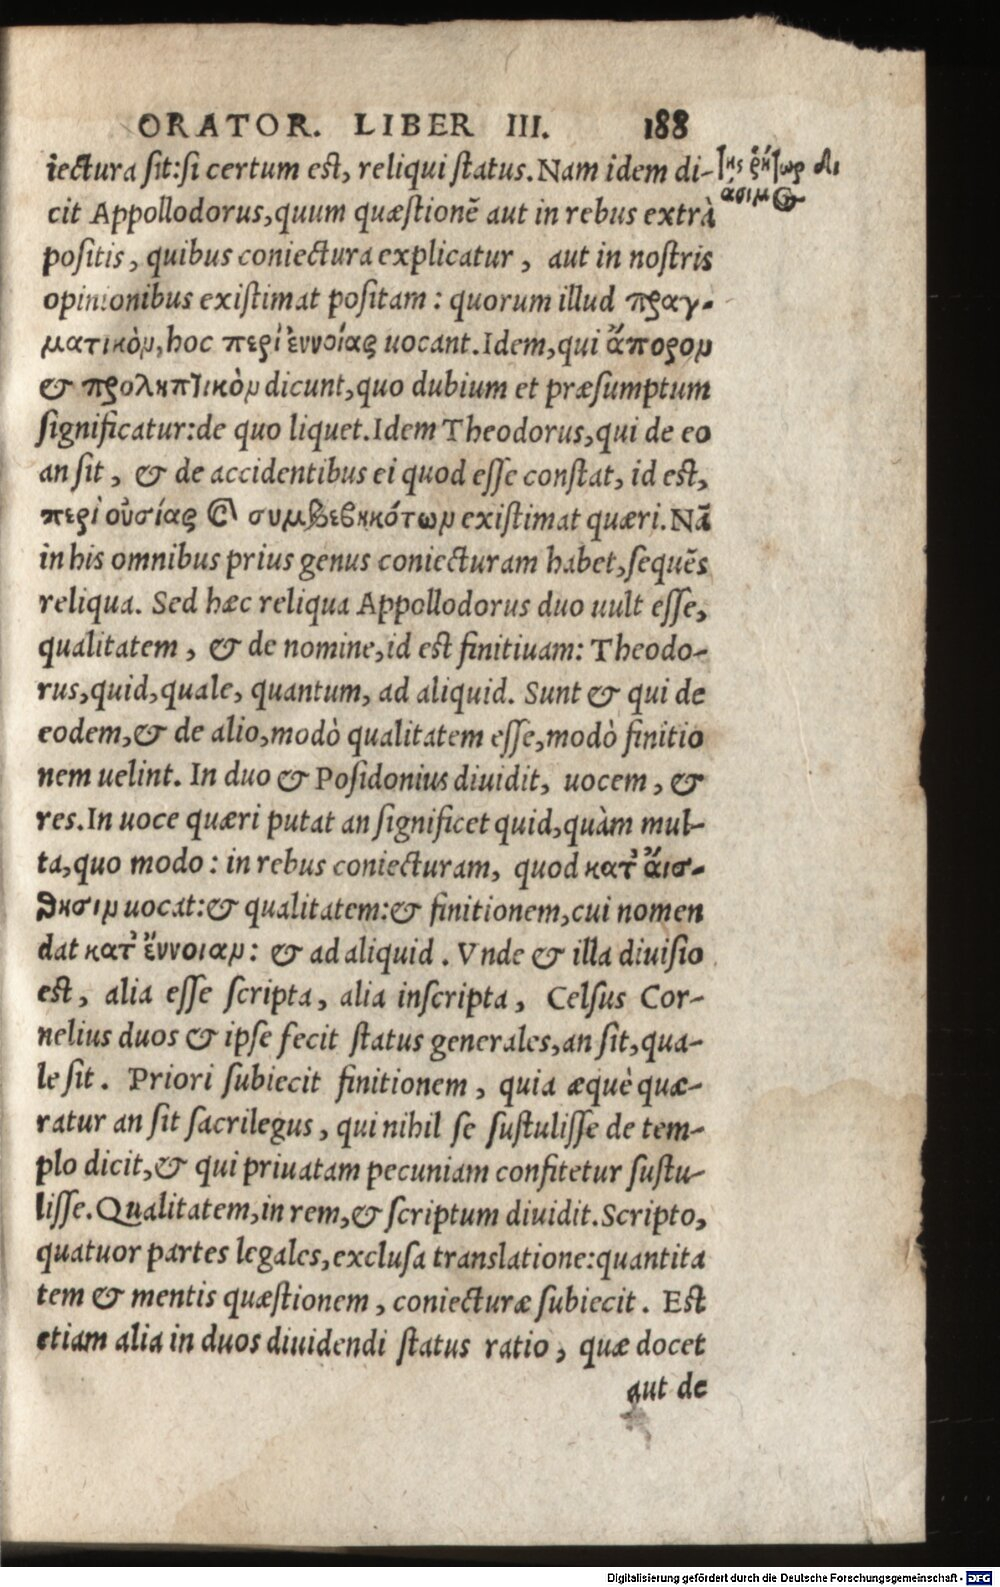 ORATOR. LIBER III. 188
iectura sit:si certum est, reliqui status.Nam idem di-
cit Appollodorus,quum quæstionē aut in rebus extrà
positis, quibus coniectura explicatur, aut in nostris
opinionibus existimat positam: quorum illud πραγ-
ματικὸν,hoc περὶ ἐννοίας uocant.Idem,qui ἄπορον
& προληπτικὸν dicunt,quo dubium et præsumptum
significatur:de quo liquet.Idem Theodorus,qui de eo
an sit, & de accidentibus ei quod esse constat, id est,
περὶ οὐσίας καὶ συμβεβηκότων existimat quæri.Nā
in his omnibus prius genus coniecturam habet,sequēs
reliqua. Sed hæc reliqua Appollodorus duo uult esse,
qualitatem, & de nomine,id est finitiuam: Theodo-
rus,quid,quale, quantum, ad aliquid. Sunt & qui de
eodem,& de alio,modò qualitatem esse,modò finitio
nem uelint. In duo & Posidonius diuidit, uocem, &
res.In uoce quæri putat an significet quid,quàm mul-
ta,quo modo: in rebus coniecturam, quod κατ' ἄισ-
θησιν uocat:& qualitatem:& finitionem,cui nomen
dat κατ' ἔννοιαν: & ad aliquid. Vnde & illa diuisio
est, alia esse scripta, alia inscripta, Celsus Cor-
nelius duos & ipse fecit status generales,an sit,qua-
le sit. Priori subiecit finitionem, quia æquè quæ-
ratur an sit sacrilegus, qui nihil se sustulisse de tem-
plo dicit,& qui priuatam pecuniam confitetur sustu-
lisse.Qualitatem,in rem,& scriptum diuidit.Scripto,
quatuor partes legales,exclusa translatione:quantita
tem & mentis quæstionem, coniecturæ subiecit. Est
etiam alia in duos diuidendi status ratio, quæ docet
aut de
Digitalisierung gefördert durch die Deutsche Forschungsgemeinschaft - DFG